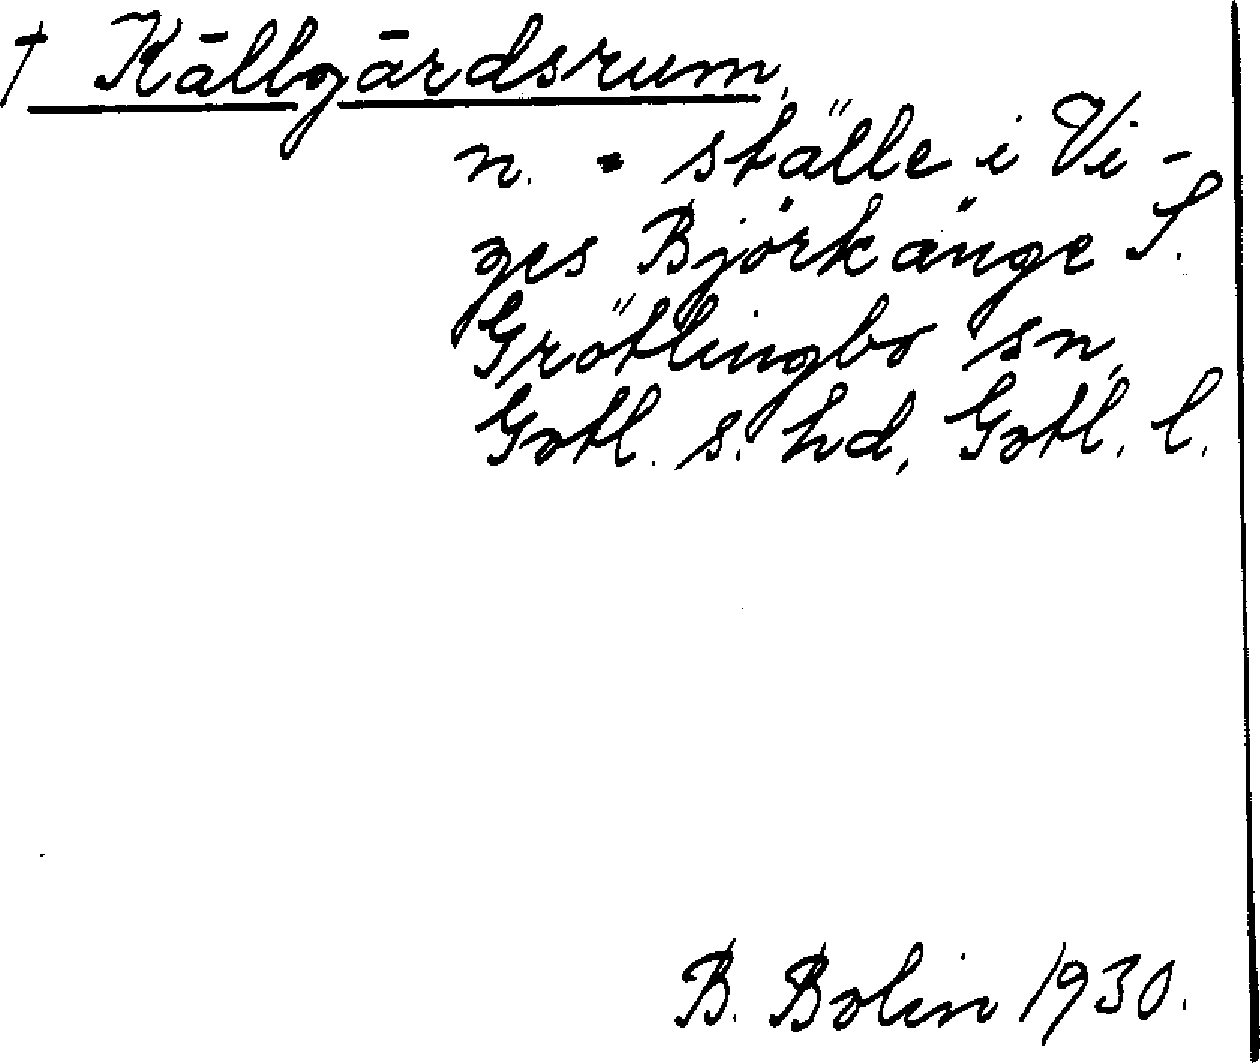 † Källgärdsrum,
n. = ställe i Vi-
ges Björkänge S.
Grötlingbo sn,
Gotl. s. hd, Gotl. l.
B. Bolin 1930.